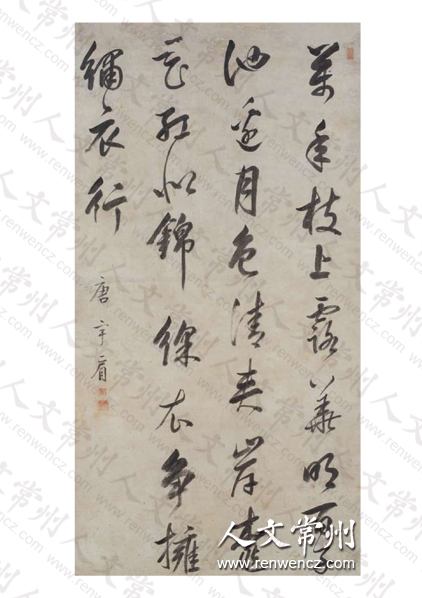 萬年枝上露華明百子
池邊月色清夾岸桃
花紅似錦綵衣爭擁
繡衣行
唐宇肩
人文常州
www.renwencz.com